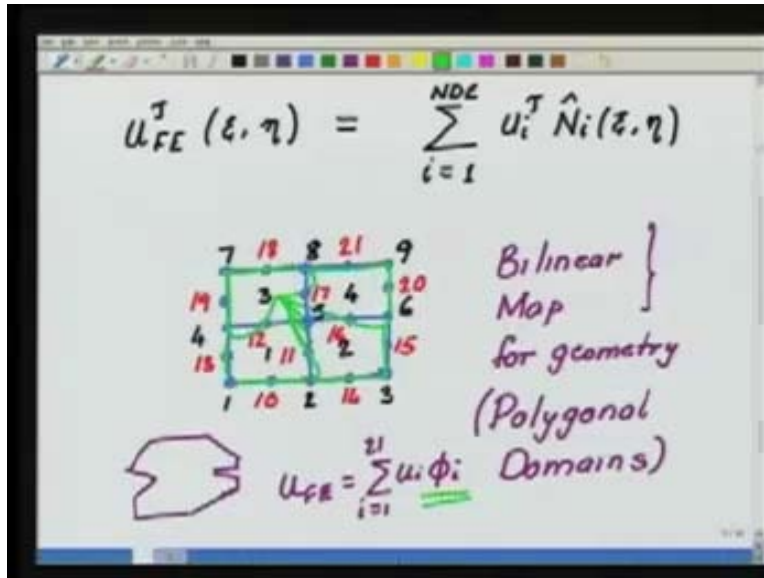 u_{FE}^{J} (ξ, η) = \sum_{i=1}^{NDL} u_i^{J} \hat{N}_i (ξ, η)
7 18 8 21 9
19 3 17 4 20
4 5 6
12 16
13 1 11 2 15
1 10 2 14 3
Bilinear
Map
for geometry
(Polygonal
Domains)
u_{FE} = \sum_{i=1}^{21} u_i ϕ_i